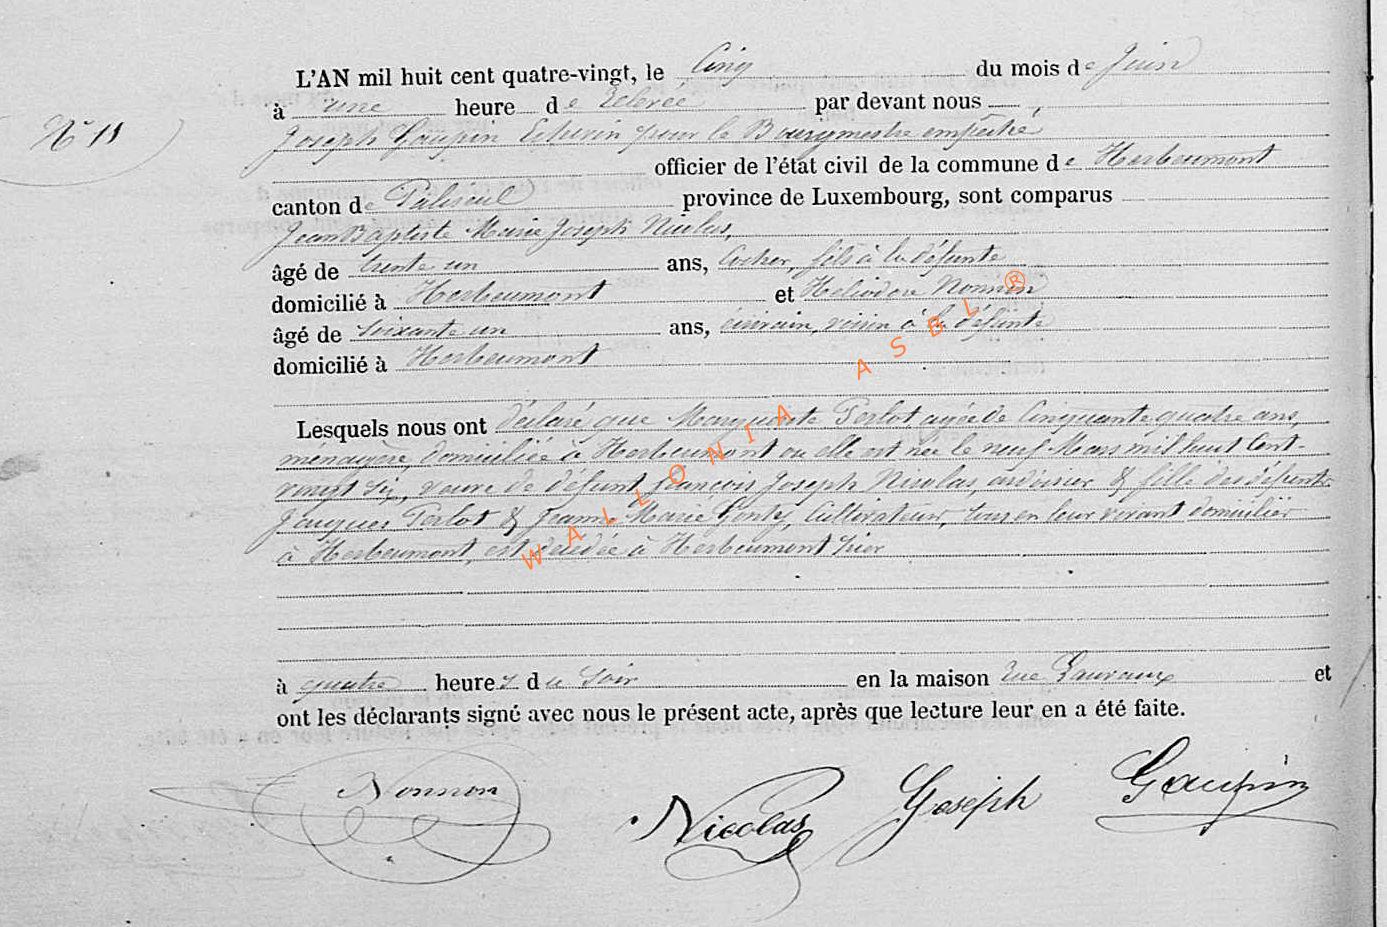 L'AN mil huit cent quatre-vingt, le Cinq du mois de Juin
à une heure de relevée par devant nous
N° 11
Joseph Gaupin Echevin pour le Bourgmestre empêché
officier de l'état civil de la commune de Herbeumont
canton de Paliseul province de Luxembourg, sont comparus
Jean Baptiste Marie Joseph Nicolas,
âgé de trente un ans, Cocher, fils à la défunte
domicilié à Herbeumont et Heliodore Nonnon
âgé de soixante un ans, écrivain, voisin à la défunte
domicilié à Herbeumont
Lesquels nous ont déclaré que Marguerite Perlot agée de Cinquante quatre ans,
ménagère, domiciliée à Herbeumont ou elle est née le neuf Mars mil huit Cent
vingt six, veuve de défunt françois Joseph Nicolas, ardoisier & fille des défunts
Jacques Perlot & Jeanne Marie Gonty, Cultivateurs, tous en leur vivant domiciliés
à Herbeumont, est décédée à Herbeumont hier
à quatre heures du soir en la maison rue Lauvaux et
ont les déclarants signé avec nous le présent acte, après que lecture leur en a été faite.
Nonnon Nicolas Joseph Gaupin
WALLONIA ASBL ®